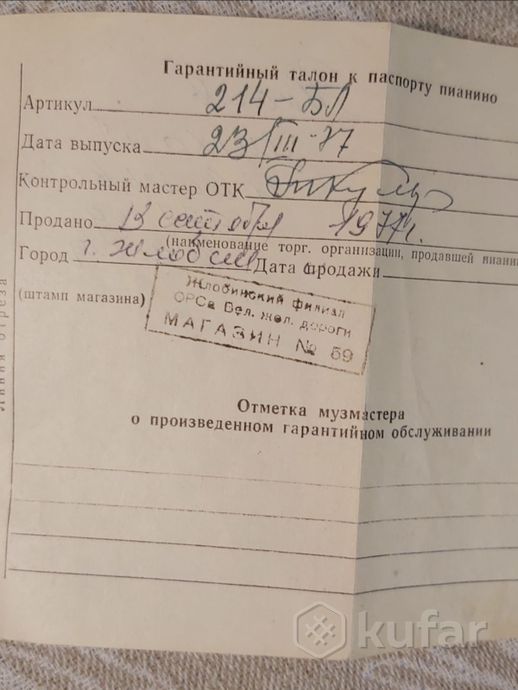 Гарантийный талон к паспорту пианино
Артикул 214-БЛ
Дата выпуска 23/III-77
Контрольный мастер ОТК
Продано 13 сентября 1977г.
(наименование торг. организации, продавшей пианин
Город г. Жлобин Дата продажи
(штамп магазина)
Жлобинский филиал
ОРСа Бел. жел. дороги
МАГАЗИН № 59
Линия отреза
Отметка музмастера
о произведенном гарантийном обслуживании
kufar